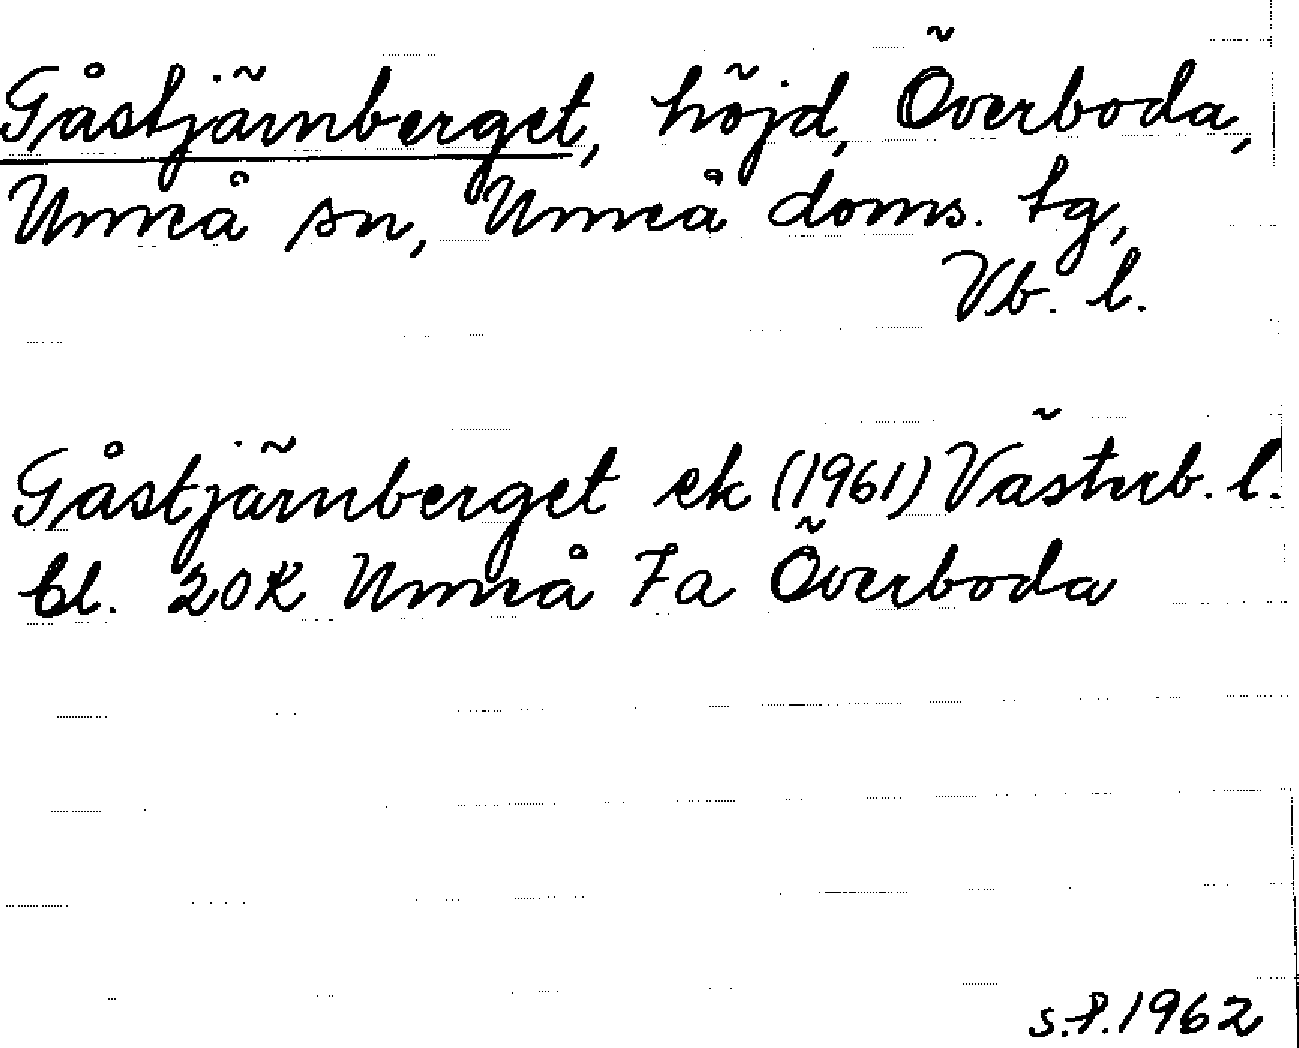 Gåstjärnberget, höjd, Överboda,
Umeå sn, Umeå doms. tg,
Vb. l.
Gåstjärnberget ek (1961) Västerb. l.
bl. 20K Umeå 7a Överboda
s.f. 1962